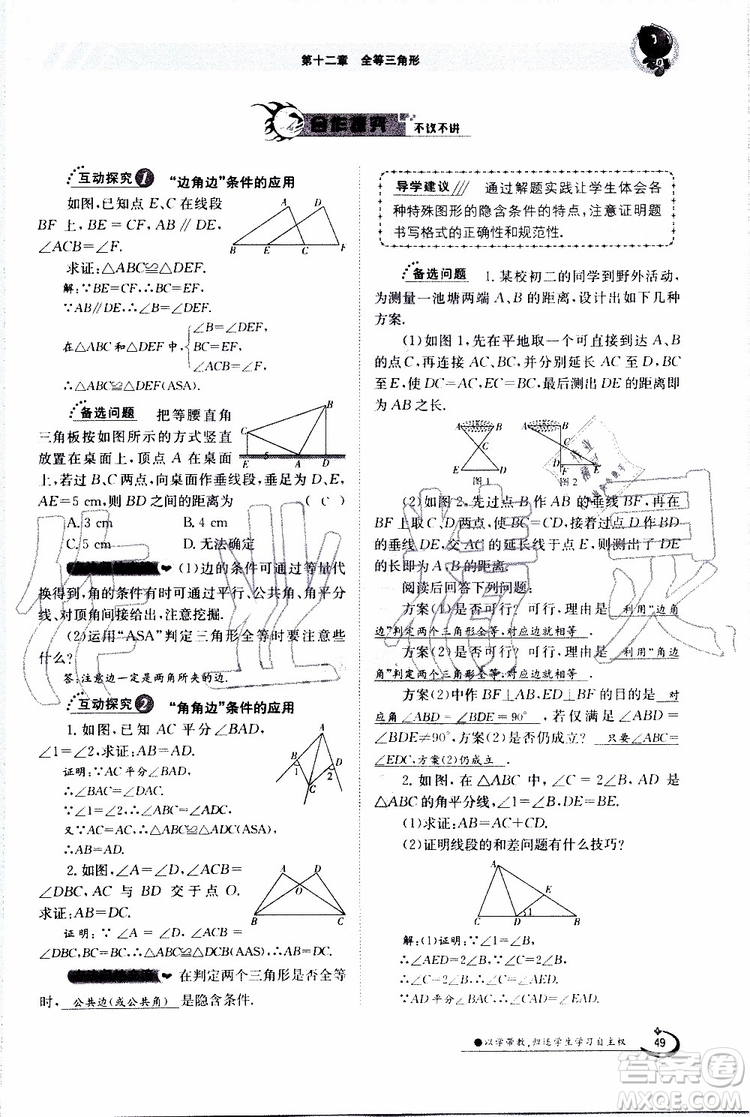 第十二章 全等三角形
合作探究 不议不讲
互动探究1 “边角边”条件的应用
如图,已知点 E、C 在线段
BF 上, BE=CF, AB∥DE,
∠ACB=∠F.
求证:△ABC≌△DEF.
解:∵BE=CF,∴BC=EF.
∵AB∥DE,∴∠B=∠DEF.
∠B=∠DEF,
在△ABC 和△DEF 中
BC=EF,
∠ACB=∠F
∴△ABC≌△DEF(ASA).
A D
B E C F
备选问题 把等腰直角
三角板按如图所示的方式竖直
放置在桌面上,顶点 A 在桌面
上,若过 B、C 两点向桌面作垂线段,垂足为 D、E,
AE=5 cm,则 BD 之间的距离为 ( C )
A. 3 cm B. 4 cm
C. 5 cm D. 无法确定
B
C
5
E A D
(1)边的条件可通过等量代
换得到,角的条件有时可通过平行、公共角、角平分
线、对顶角间接给出,注意挖掘.
(2)运用“ASA”判定三角形全等时要注意些
什么?
答:注意边一定是两角所夹的边.
互动探究2 “角角边”条件的应用
1. 如图, 已知 AC 平分∠BAD,
∠1=∠2,求证:AB=AD.
证明:∵AC 平分∠BAD,
∴∠BAC=∠DAC.
∵∠1=∠2,
∴∠ABC=∠ADC.
又∵AC=AC,
∴△ABC≌△ADC(ASA).
∴AB=AD.
A
B D
1 2
C
2. 如图, ∠A=∠D, ∠ACB=
∠DBC, AC 与 BD 交于点 O.
求证:AB=DC.
证明: ∵∠A = ∠D, ∠ACB =
∠DBC,BC=BC,∴△ABC≌△DCB(AAS),∴AB=DC.
A D
O
B C
在判定两个三角形是否全等
时, 公共边(或公共角) 是隐含条件.
导学建议 通过解题实践让学生体会各
种特殊图形的隐含条件的特点,注意证明题
书写格式的正确性和规范性.
备选问题 1. 某校初二的同学到野外活动,
为测量一池塘两端 A、B 的距离,设计出如下几
方案.
(1)如图 1,先在平地取一个可直接到达 A、B
的点 C,连接 AC、BC,并分别延长 AC 至 D,BC
至 E,使 DC=AC,EC=BC,最后测出 DE 的距离
即为 AB 之长.
A B A B
C C D
E D E F
图1 图2
(2)如图 2,先过点 B 作 AB 的垂线 BF,再在
BF 上取 C、D 两点使 BC=CD,接着过 D 作 BD
的垂线 DE,交 AC 的延长线于点 E,则测出 DE
的长即为 AB 的距离.
阅读后回答下列问题:
方案(1)是否可行? 可行,理由是 利用“边角
边”判定两个三角形全等,对应边就相等 .
方案(2)是否可行? 可行,理由是 利用“角边
角”判定两个三角形全等,对应边就相等 .
方案(2)中作 BF⊥AB、ED⊥BF 的目的是 对
应角∠ABD=∠BDE=90° ,若仅满足∠ABD=
∠BDE≠90°,方案(2)是否仍成立? 只要∠ABC=
∠EDC,方案(2)仍成立 .
2. 如图, 在△ABC 中, ∠C = 2∠B, AD 是
△ABC 的角平分线,∠1=∠B,DE=BE.
(1)求证:AB=AC+CD.
(2)证明线段的和差问题有什么技巧?
A
E
1
C D B
解:(1)证明:∵∠1=∠B,
∴∠AED=2∠B,
∵∠C=2∠B,
∴∠C=∠AED.
∵AD 平分∠BAC,∴∠EAD=∠CAD.
以学带教,归还学生学习自主权
49
作业精灵
MXQE.COM